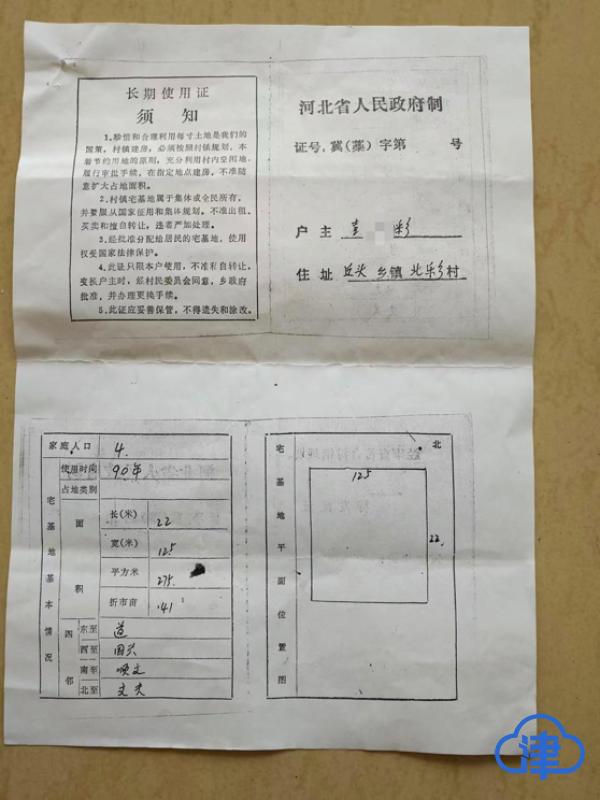 长期使用证
须知
1.珍惜和合理利用每寸土地是我们的
国策，村镇建房，必须按照村镇规划，本
着节约用地的原则，充分利用村内空闲地，
履行审批手续，在指定地点建房，不准随
意扩大占地面积。
2.村镇宅基地属于集体或全民所有，
并要服从国家征用和集体规划，不准出租、
买卖和擅自转让，违者严加处理。
3.经批准分配给居民的宅基地，使用
权受国家法律保护。
4.此证只限本户使用，不准私自转让，
变换户主时，经村民委员会同意，乡政府
批准，并办理更换手续。
5.此证应妥善保管，不得遗失和涂改。
河北省人民政府制
证号：冀（藁）字第 号
户主 彩
住址 丘头 乡镇 北乐乡村
家庭人口 4.
使用时间 90年
占地类别
宅基地基本情况
面积
长(米) 22
宽(米) 12.5
平方米 275
折市亩 .41
四邻
东至 道
西至 国兴
南至 顺文
北至 文夫
宅基地平面位置图
北
12.5
22.
津